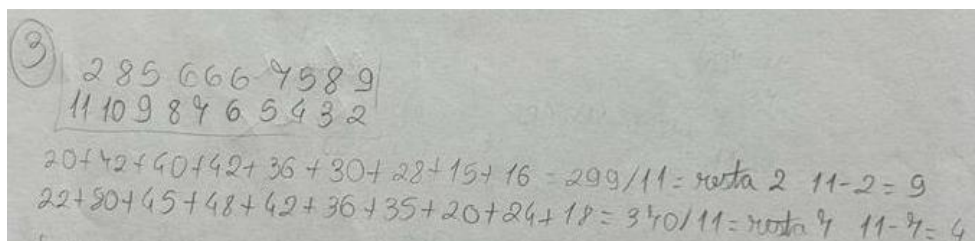 3
285 666 7589
11 10 9 8 7 6 5 4 3 2
20+72+40+42+36+30+28+15+16 = 299/11 = resta 2 11-2 = 9
22+80+45+48+42+36+35+20+24+18 = 370/11 = resta 7 11-7 = 4